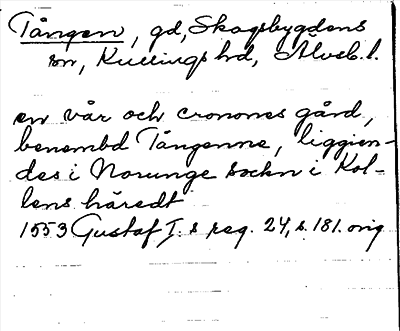 Tången, gd, Skogsbygdens
sn, Kullings hd, Älvsb. l.
en vår och cronones gård,
benembd Tångenne, liggien-
des i Norunge sockn i Kol-
lens häredt
1553 Gustaf I:s reg. 24, s. 181. orig